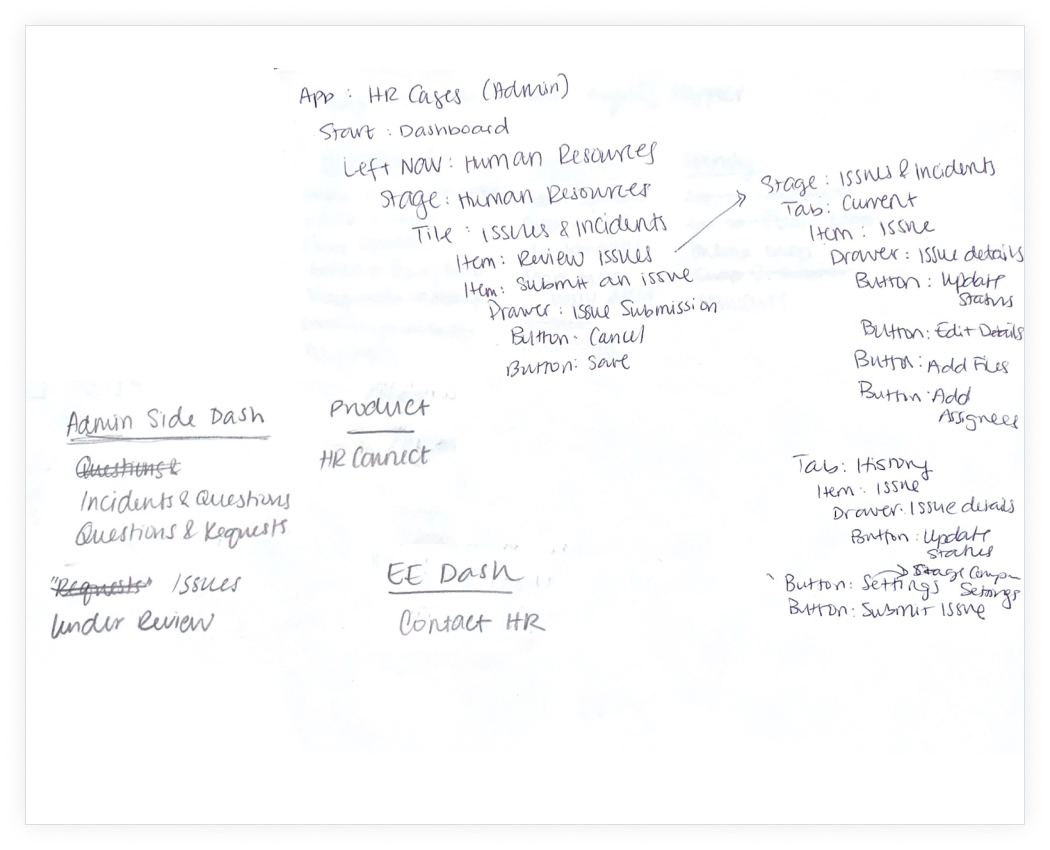 App : HR Cases (Admin)
Start : Dashboard
Left Nav : Human Resources
Stage : Human Resources
Tile : Issues & Incidents
Item : Review Issues
Item : Submit an issue
Drawer : Issue Submission
Button : Cancel
Button : Save
Stage : Issues & Incidents
Tab : Current
Item : Issue
Drawer : Issue details
Button : Update
Status
Button : Edit Details
Button : Add Files
Button : Add
Assignees
Tab : History
Item : Issue
Drawer : Issue details
Button : Update
Status
Button : Settings → Stage Compan
Settings
Button : Submit Issue
Admin Side Dash
Questions &
Incidents & Questions
Questions & Requests
"Requests" Issues
Under Review
Product
HR Connect
EE Dash
Contact HR